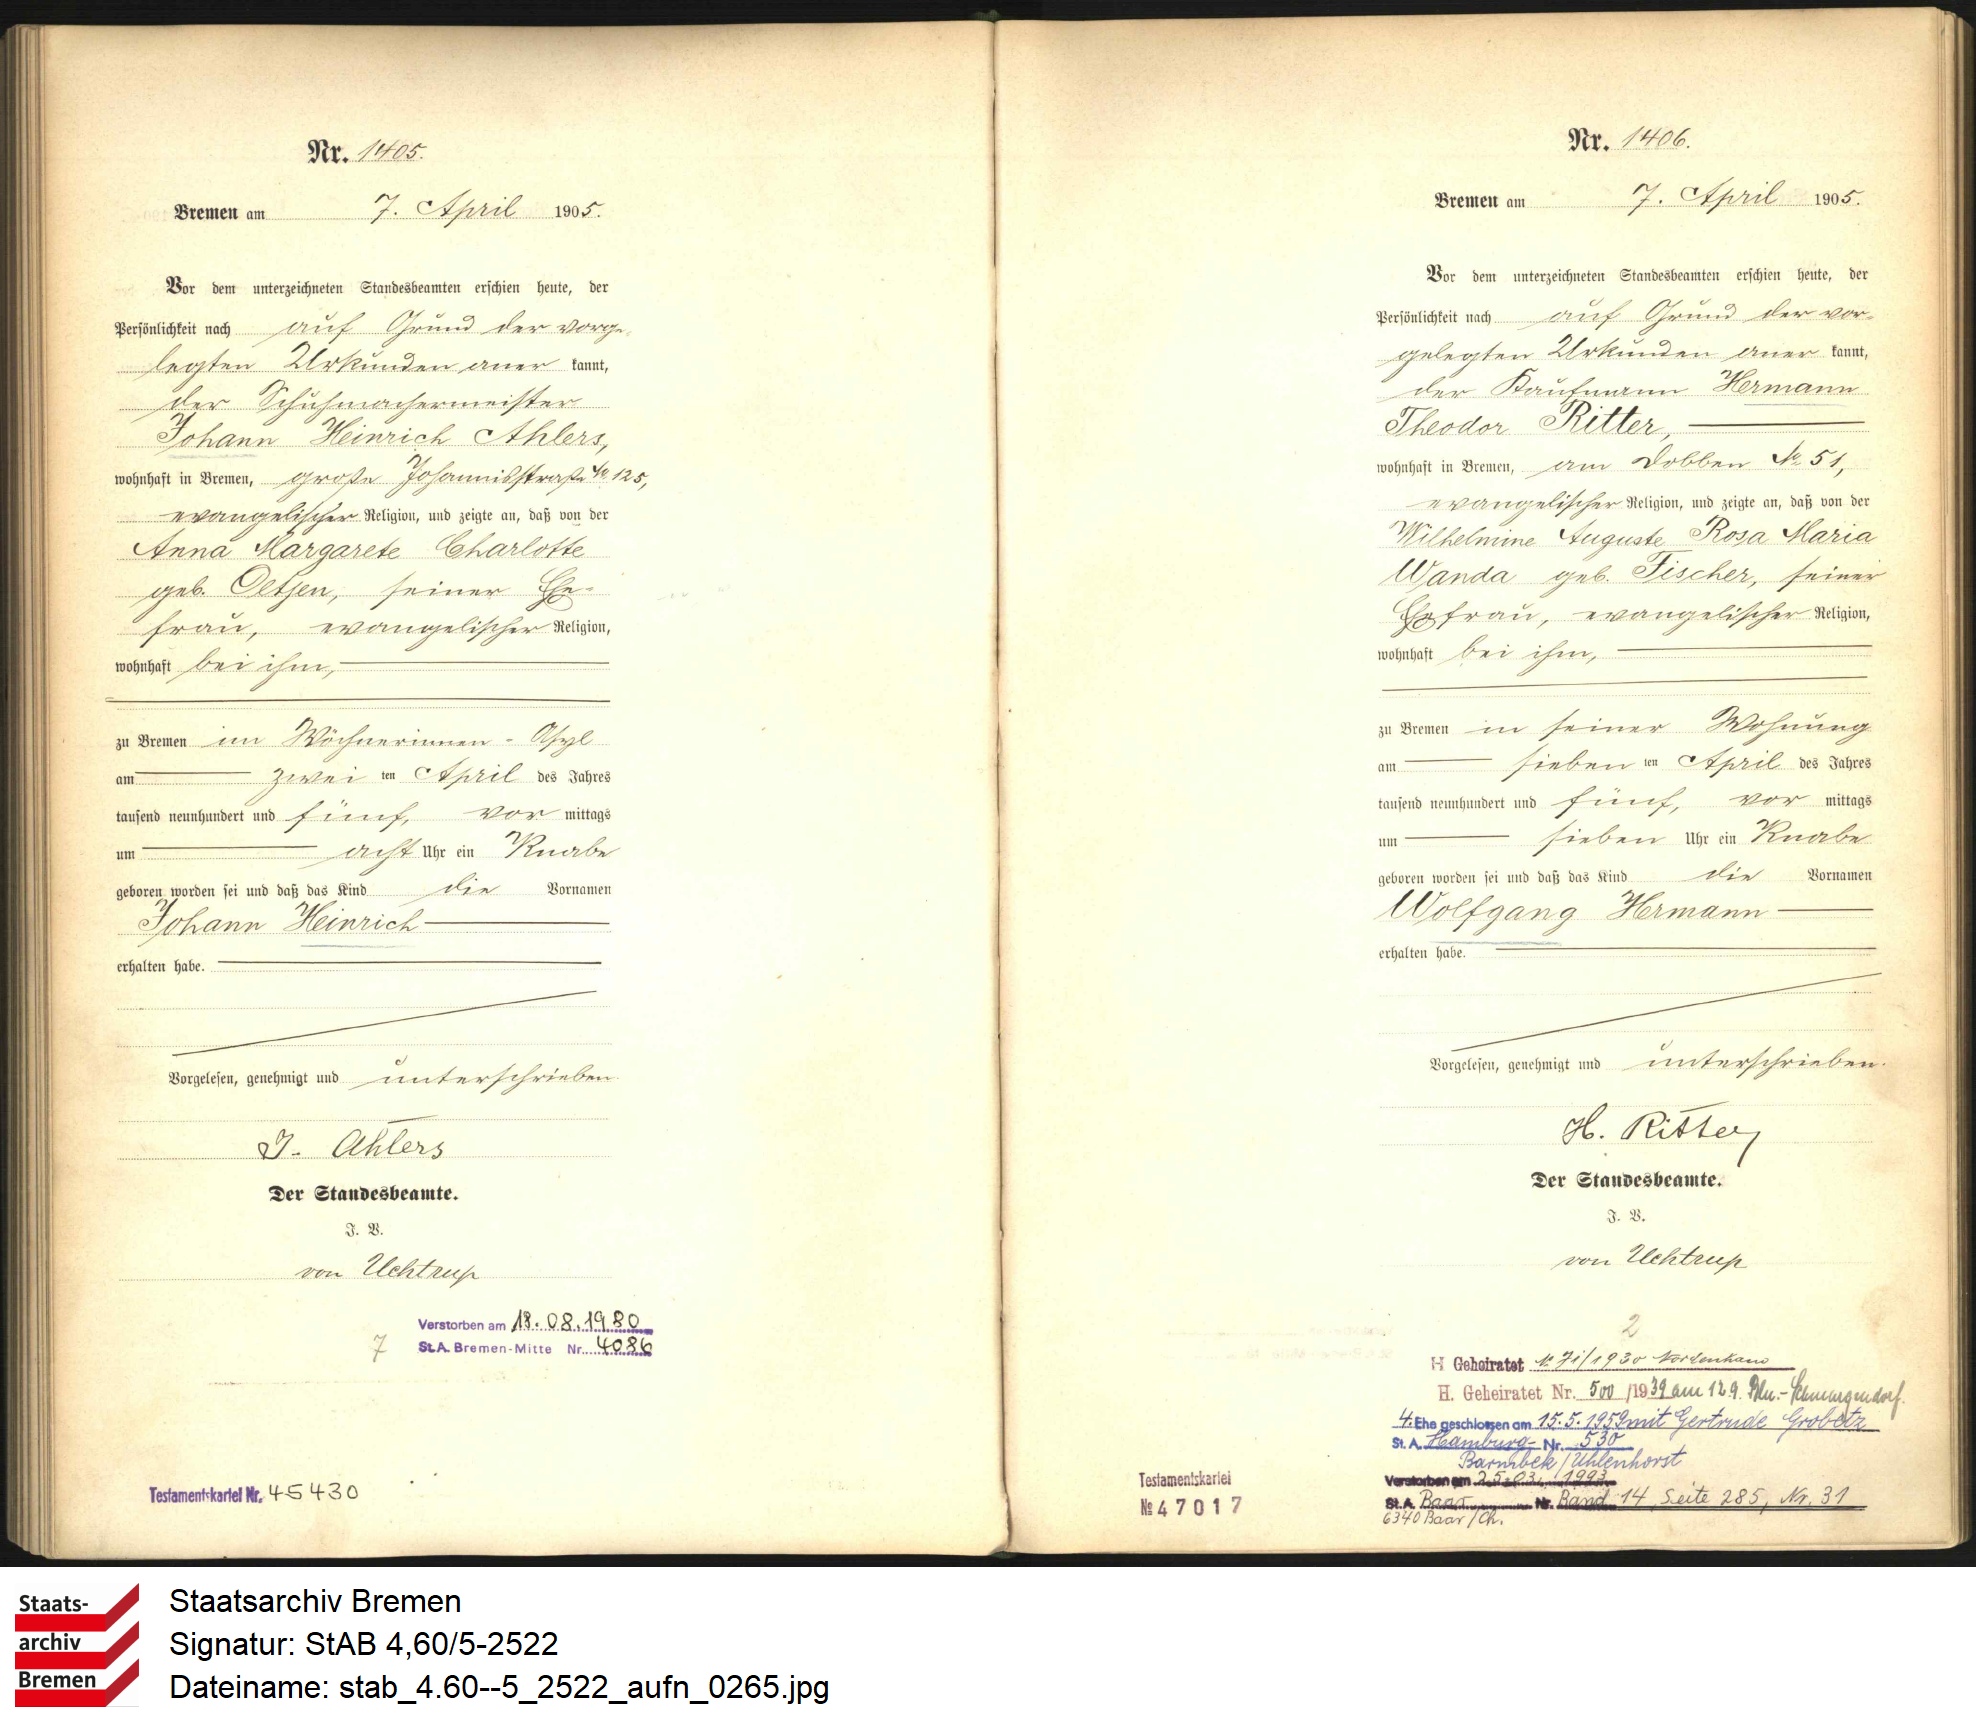 Nr. 1405.
Bremen am 7. April 1905.
Vor dem unterzeichneten Standesbeamten erschien heute, der
Persönlichkeit nach auf Grund der vorge-
legten Urkunden aner kannt,
der Schuhmachermeister
Johann Heinrich Ahlers,
wohnhaft in Bremen, große Johannisstraße № 125,
evangelischer Religion, und zeigte an, daß von der
Anna Margarete Charlotte
geb. Oetjen, seiner Ehe-
frau, evangelischer Religion,
wohnhaft bei ihm,
zu Bremen im Wöchnerinnen-Asyl
am zwei ten April des Jahres
tausend neunhundert und fünf, vor mittags
um acht Uhr ein Knabe
geboren worden sei und daß das Kind die Vornamen
Johann Heinrich
erhalten habe.
Vorgelesen, genehmigt und unterschrieben.
J. Ahlers
Der Standesbeamte.
J. V.
von Uchtrup
Verstorben am 18.08.1980
St.A. Bremen-Mitte Nr. 4086
7
Testamentskartei Nr. 45430
Nr. 1406.
Bremen am 7. April 1905.
Vor dem unterzeichneten Standesbeamten erschien heute, der
Persönlichkeit nach auf Grund der vor-
gelegten Urkunden aner kannt,
der Kaufmann Hermann
Theodor Ritter,
wohnhaft in Bremen, am Dobben № 51,
evangelischer Religion, und zeigte an, daß von der
Wilhelmine Auguste Rosa Maria
Wanda geb. Fischer, seiner
Ehefrau, evangelischer Religion,
wohnhaft bei ihm,
zu Bremen in seiner Wohnung
am sieben ten April des Jahres
tausend neunhundert und fünf, vor mittags
um sieben Uhr ein Knabe
geboren worden sei und daß das Kind die Vornamen
Wolfgang Hermann
erhalten habe.
Vorgelesen, genehmigt und unterschrieben.
H. Ritter
Der Standesbeamte.
J. V.
von Uchtrup
2
H Geheiratet № 71/1930 Nordenham
H. Geheiratet Nr. 500/1939 am 12.9. Bln.-Schmargendorf.
4. Ehe geschlossen am 15.5.1959 mit Gertrude Grobetz
St.A. Hamburg- Nr. 530
Barmbek/Uhlenhorst
Verstorben am 25.03.1993
St.A. Baar Nr. Band 14, Seite 285, Nr. 31
6340 Baar/Ch.
Testamentskartei
№ 47017
Staats-
archiv
Bremen
Staatsarchiv Bremen
Signatur: StAB 4,60/5-2522
Dateiname: stab_4.60--5_2522_aufn_0265.jpg